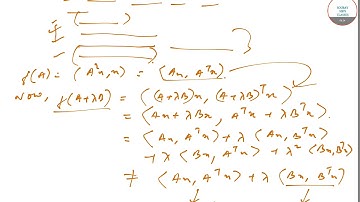 f(A) = ⟨A²x, x⟩ = ⟨Ax, Aᵀx⟩.
Now, f(A+λB) = ⟨(A+λB)x, (A+λB)ᵀx⟩
= ⟨Ax + λBx, Aᵀx + λBᵀx⟩.
= ⟨Ax, Aᵀx⟩ + λ⟨Ax, Bᵀx⟩
+ λ⟨Bx, Aᵀx⟩ + λ²⟨Bx, Bᵀx⟩
≠ ⟨Ax, Aᵀx⟩ + λ⟨Bx, Bᵀx⟩